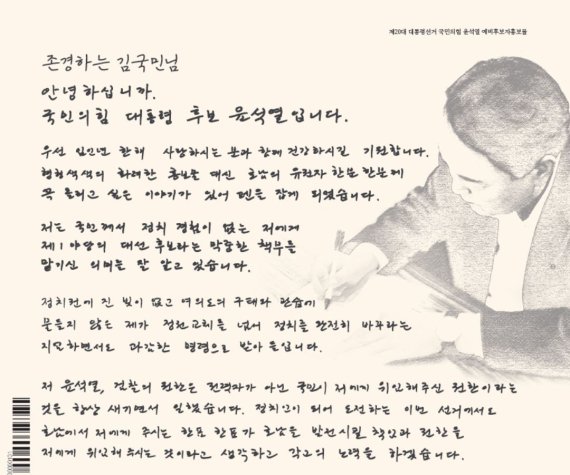 제20대 대통령선거 국민의힘 윤석열 예비후보자홍보물
존경하는 김국민님
안녕하십니까.
국민의힘 대통령 후보 윤석열입니다.
우선 임인년 한해 사랑하시는 분과 함께 건강하시길 기원합니다.
형형색색의 화려한 홍보물 대신 호남의 유권자 한분 한분께
꼭 올리고 싶은 이야기가 있어 펜을 잡게 되었습니다.
저는 국민께서 정치 경험이 없는 저에게
제1야당의 대선 후보라는 막중한 책무를
맡기신 의미를 잘 알고 있습니다.
정치권에 진 빚이 없고 여의도의 구태와 관습에
물들지 않은 제가 정권교체를 넘어 정치를 완전히 바꾸라는
지엄하면서도 과감한 명령으로 받아들입니다.
저 윤석열, 검찰의 권한은 권력자가 아닌 국민이 저에게 위임해주신 권한이라는
것을 항상 새기면서 일했습니다. 정치인이 되어 도전하는 이번 선거에서도
호남에서 저에게 주시는 한표 한표가 호남을 발전시킬 책임과 권한을
저에게 위임해 주시는 것이라고 생각하고 각고의 노력을 하겠습니다.